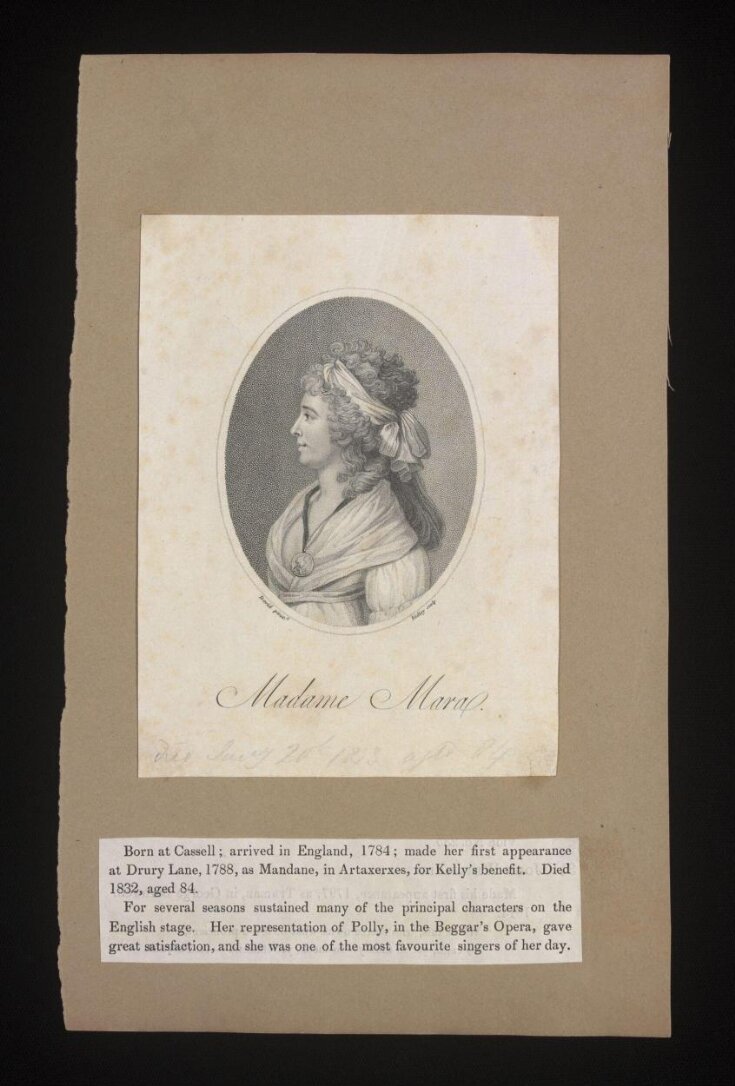 pinxt.
Ridley sculp
Madame Mara.
20
Born at Cassell; arrived in England, 1784; made her first appearance
at Drury Lane, 1788, as Mandane, in Artaxerxes, for Kelly's benefit. Died
1832, aged 84.
For several seasons sustained many of the principal characters on the
English stage. Her representation of Polly, in the Beggar's Opera, gave
great satisfaction, and she was one of the most favourite singers of her day.